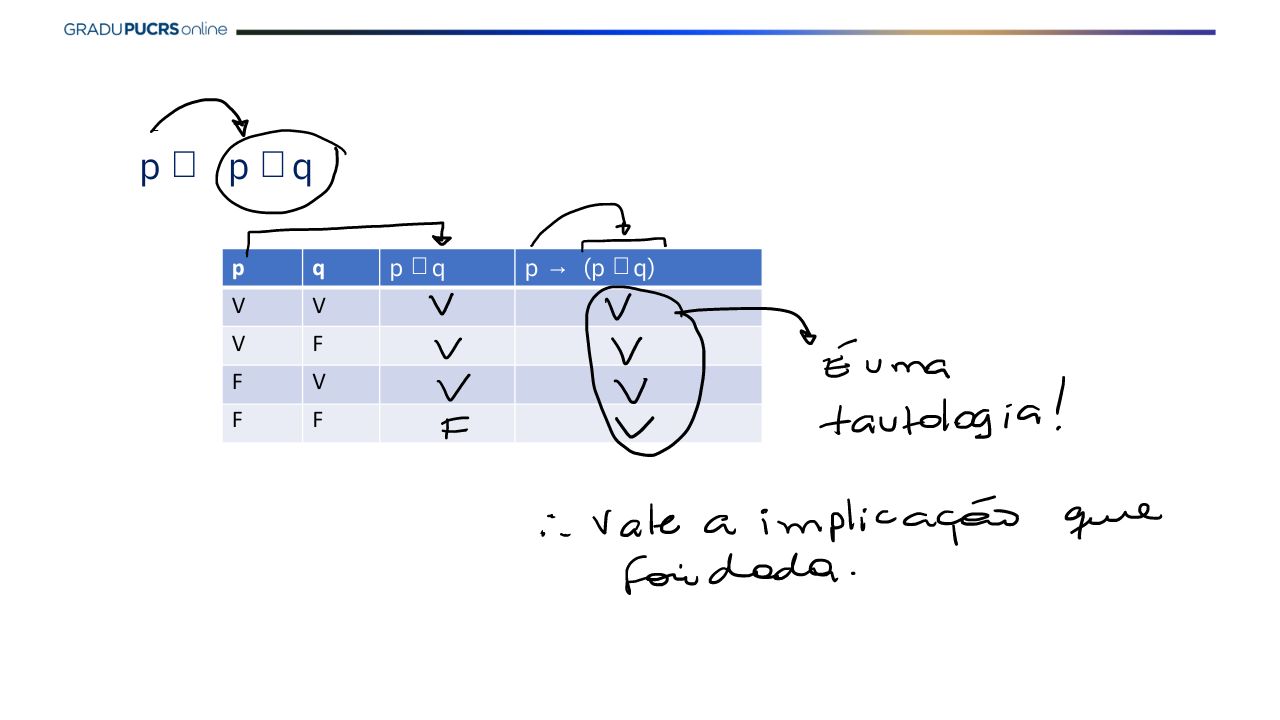 GRADUPUCRS online
p □ p □ q
p q p □ q p → (p □ q)
V V V V
V F V V
F V V V
F F F V
É uma
tautologia!
∴ Vale a implicação que
foi dada.